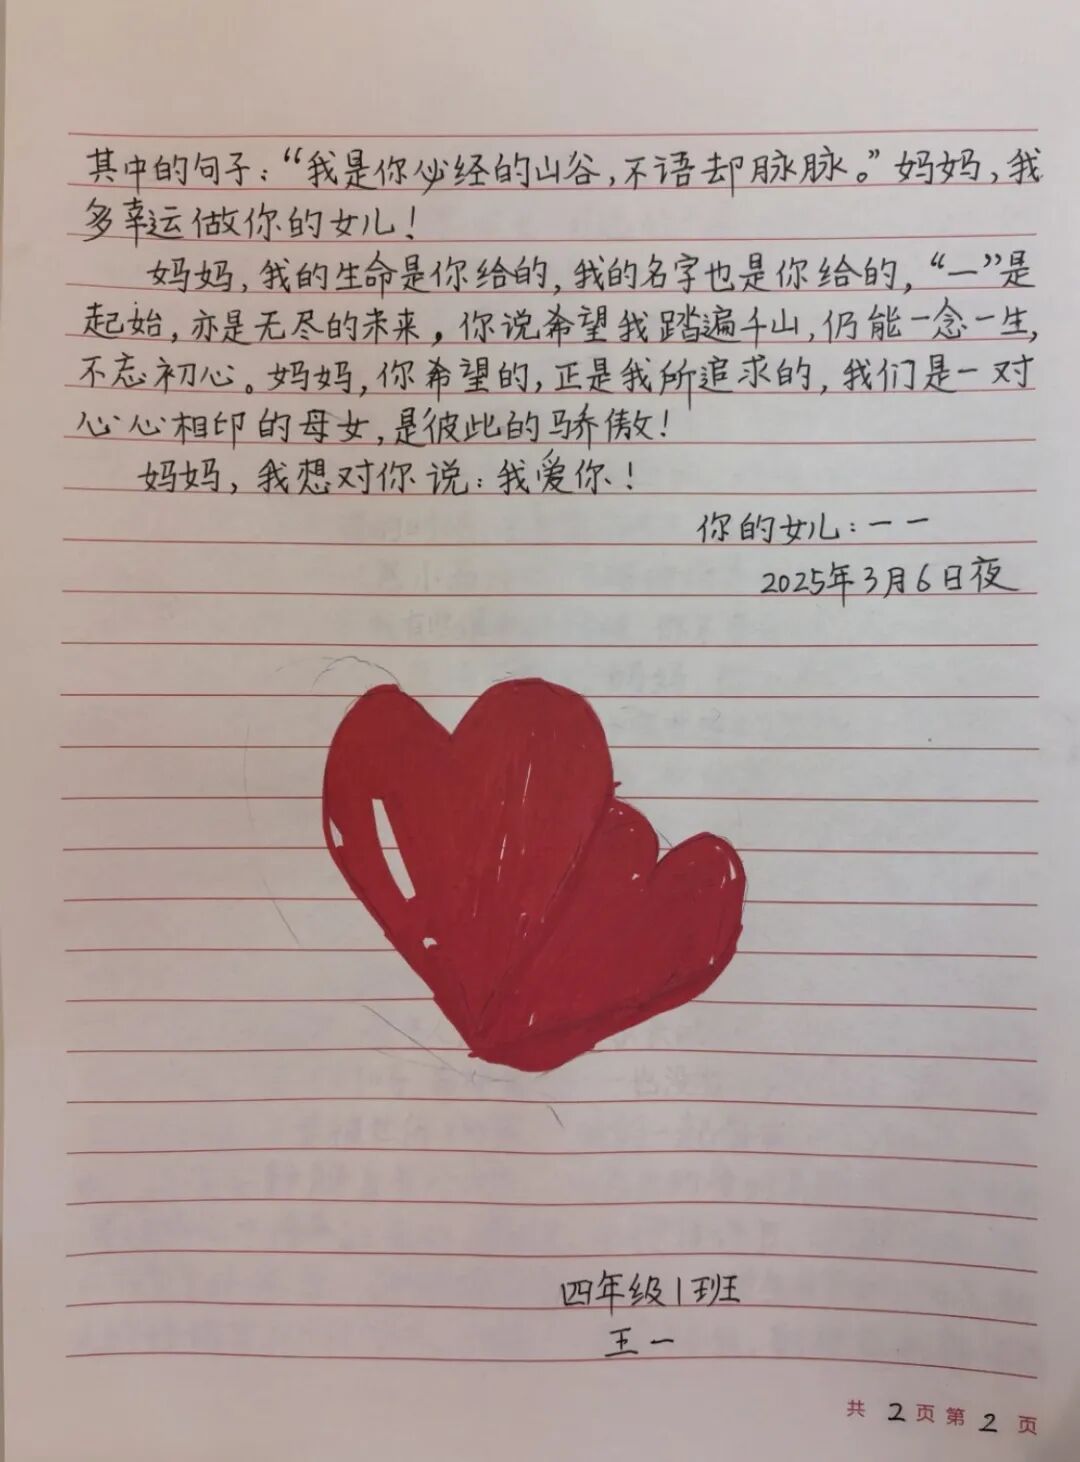 其中的句子：“我是你必经的山谷，不语却脉脉。”妈妈，我
多幸运做你的女儿！
妈妈，我的生命是你给的，我的名字也是你给的，“一”是
起始，亦是无尽的未来，你说希望我踏遍千山，仍能一念一生，
不忘初心。妈妈，你希望的，正是我所追求的，我们是一对
心心相印的母女，是彼此的骄傲！
妈妈，我想对你说：我爱你！
你的女儿：一一
2025年3月6日夜
四年级1班
王一
共2页第2页